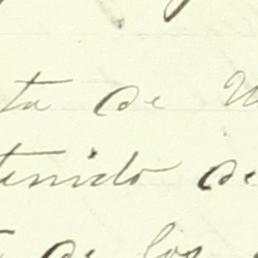 ta de
tenido de
de los